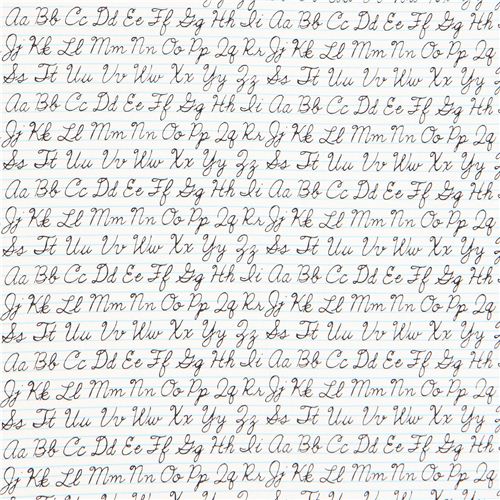 Aa Bb Cc Dd Ee Ff Gg Hh Ii Aa Bb Cc Dd Ee Ff Gg Hh
Jj Kk Ll Mm Nn Oo Pp Qq Rr Jj Kk Ll Mm Nn Oo Pp
Ss Tt Uu Vv Ww Xx Yy Zz Ss Tt Uu Vv Ww Xx Yy
Aa Bb Cc Dd Ee Ff Gg Hh Ii Aa Bb Cc Dd Ee Ff Gg Hh
Jj Kk Ll Mm Nn Oo Pp Qq Rr Jj Kk Ll Mm Nn Oo Pp
Ss Tt Uu Vv Ww Xx Yy Zz Ss Tt Uu Vv Ww Xx Yy
Aa Bb Cc Dd Ee Ff Gg Hh Ii Aa Bb Cc Dd Ee Ff Gg Hh
Jj Kk Ll Mm Nn Oo Pp Qq Rr Jj Kk Ll Mm Nn Oo Pp
Ss Tt Uu Vv Ww Xx Yy Zz Ss Tt Uu Vv Ww Xx Yy
Aa Bb Cc Dd Ee Ff Gg Hh Ii Aa Bb Cc Dd Ee Ff Gg Hh
Jj Kk Ll Mm Nn Oo Pp Qq Rr Jj Kk Ll Mm Nn Oo Pp
Ss Tt Uu Vv Ww Xx Yy Zz Ss Tt Uu Vv Ww Xx Yy
Aa Bb Cc Dd Ee Ff Gg Hh Ii Aa Bb Cc Dd Ee Ff Gg Hh
Jj Kk Ll Mm Nn Oo Pp Qq Rr Jj Kk Ll Mm Nn Oo Pp
Ss Tt Uu Vv Ww Xx Yy Zz Ss Tt Uu Vv Ww Xx Yy
Aa Bb Cc Dd Ee Ff Gg Hh Ii Aa Bb Cc Dd Ee Ff Gg Hh
Jj Kk Ll Mm Nn Oo Pp Qq Rr Jj Kk Ll Mm Nn Oo Pp